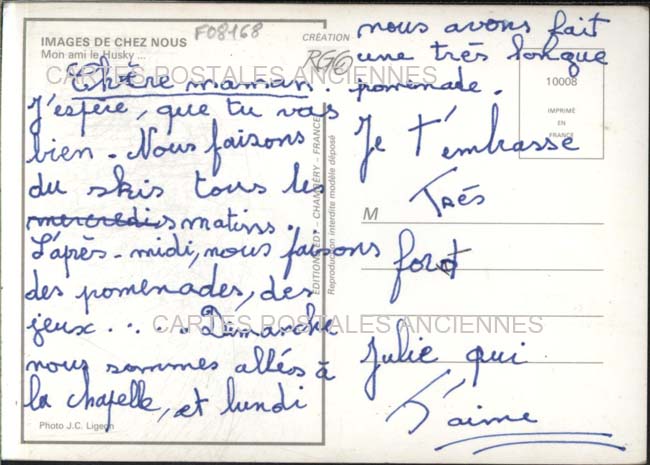 F08168
IMAGES DE CHEZ NOUS
Mon ami le Husky ...
CRÉATION
RGG
CARTES POSTALES ANCIENNES
Chère maman.
J'espère, que tu vas
bien. Nous faisons
du skis tous les
mercredis matins.
L'après-midi, nous faisons
des promenades, des
jeux.... Dimanche
nous sommes allés à
la chapelle, et lundi
Photo J.C. Ligeon
EDITIONS EDT - CHAMBÉRY - FRANCE
Reproduction interdite modèle déposé
nous avons fait
une très longue
promenade.
10008
IMPRIMÉ
EN
FRANCE
Je t'embrasse
Très
M
fort
CARTES POSTALES ANCIENNES
Julie qui
t'aime